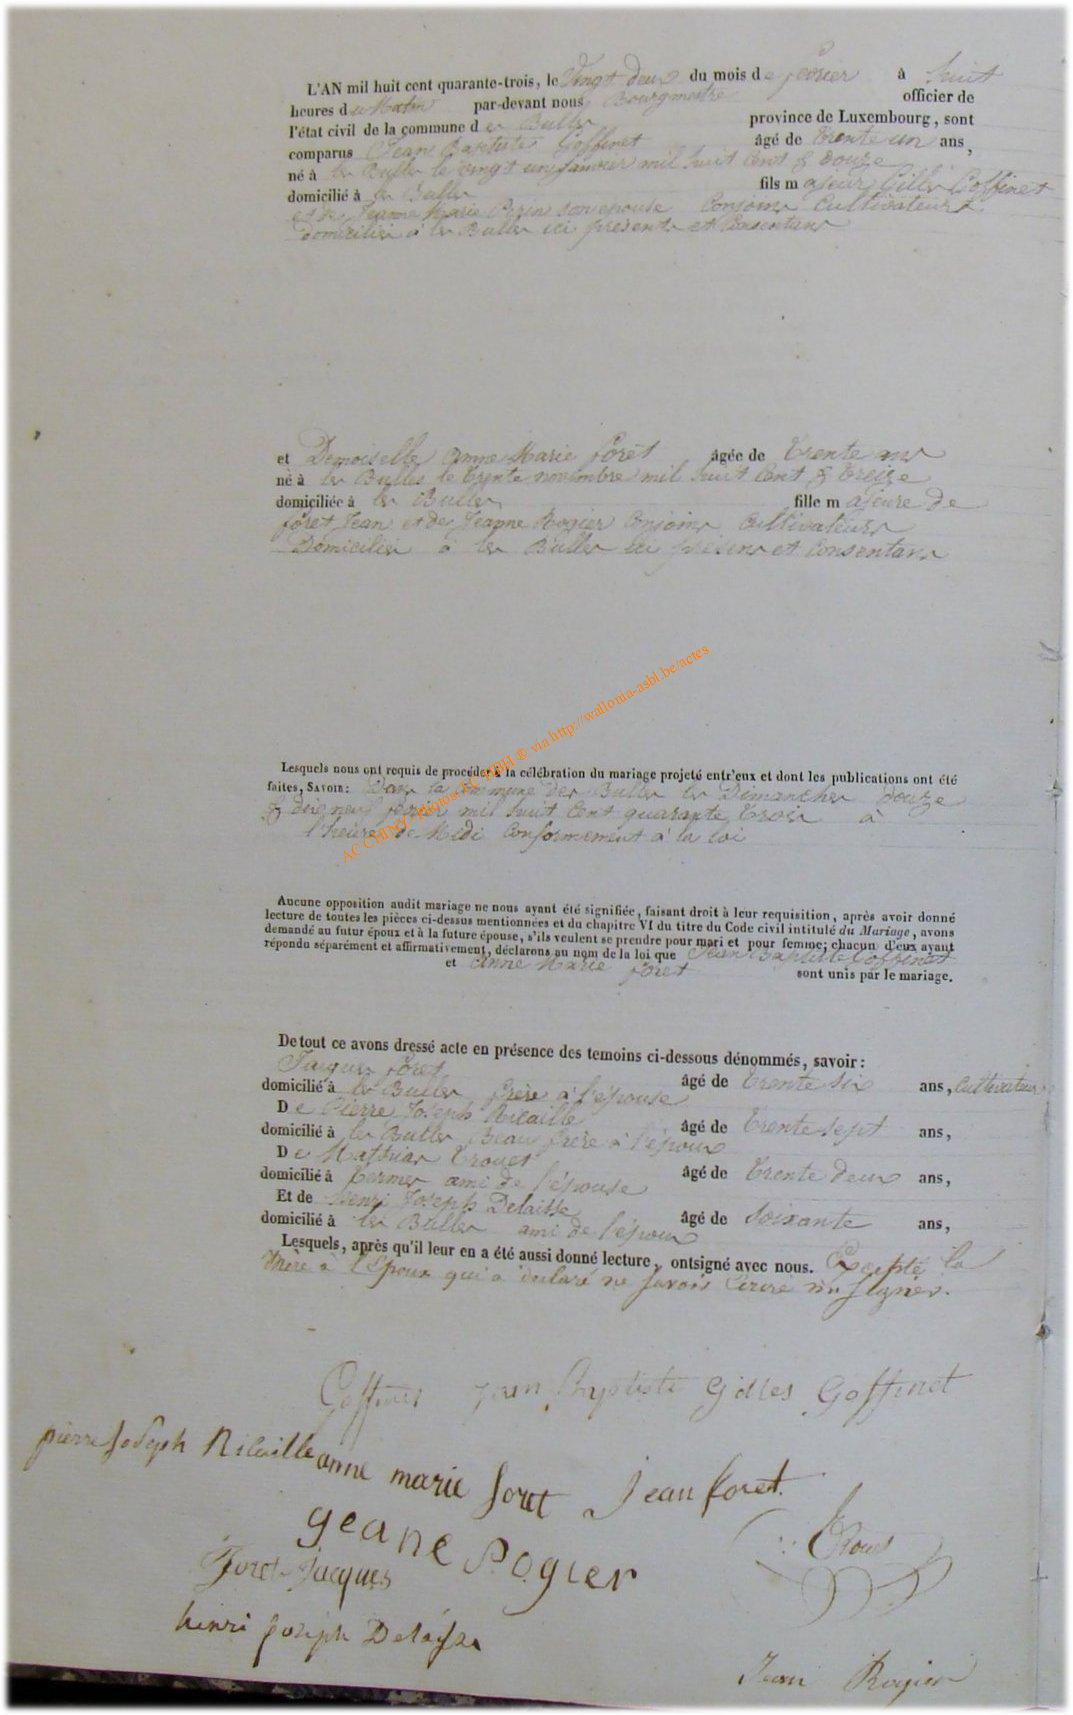 L'AN mil huit cent quarante-trois, le Vingt deux du mois de fevrier à huit
heures du Matin par-devant nous Bourgmestre officier de
l'état civil de la commune de les Bulles province de Luxembourg, sont
comparus Jean Baptiste Goffinet âgé de trente un ans,
né à les Bulles le vingt un janvier mil huit cent & douze
domicilié à les Bulles fils majeur Gilles Goffinet
et de Jeanne Marie Perin son epouse Conjoins Cultivateurs
domiciliés à les Bulles ici présents et Consentans
et Demoiselle Anne Marie foret âgée de trente ans
né à les Bulles le trente novembre mil huit Cent & treize
domiciliée à les Bulles fille majeure de
foret Jean et de Jeanne Rogier Conjoins Cultivateurs
Domiciliés à les Bulles ici présens et Consentans
AC CHINY Photos FC WDH ® via http://wallonia-asbl.be/actes
Lesquels nous ont requis de procéder à la célébration du mariage projeté entr'eux et dont les publications ont été
faites, SAVOIR: Dans la Commune des Bulles les Dimanches douze
& dix neuf fevrier mil huit Cent quarante trois à
l'heure de Midi Conformement à la loi
Aucune opposition audit mariage ne nous ayant été signifiée, faisant droit à leur requisition, après avoir donné
lecture de toutes les pièces ci-dessus mentionnées et du chapitre VI du titre du Code civil intitulé du Mariage, avons
demandé au futur époux et à la future épouse, s'ils veulent se prendre pour mari et pour femme; chacun d'eux ayant
répondu séparément et affirmativement, déclarons au nom de la loi que Jean Baptiste Goffinet
et Anne Marie foret sont unis par le mariage.
De tout ce avons dressé acte en présence des temoins ci-dessous dénommés, savoir:
Jacques foret âgé de trente six ans, Cultivateur
domicilié à les Bulles frère à l'épouse
De Pierre Joseph Ricaille âgé de trente sept ans,
domicilié à les Bulles Beau frère à l'époux
De Mathias Trouet âgé de trente deux ans,
domicilié à Termes ami de l'épouse
Et de Henri Joseph Delaisse âgé de soixante ans,
domicilié à les Bulles ami de l'époux
Lesquels, après qu'il leur en a été aussi donné lecture, ont signé avec nous. Excepté la
Mère à l'Epoux qui a déclaré ne savoir Ecrire ni signer.
Goffinet Jean Baptiste Gilles Goffinet
pierre Joseph Ricaille anne marie foret Jean foret.
geane Rogier Trouet
Foret Jacques
henri joseph Delaisse
Jean Rogier